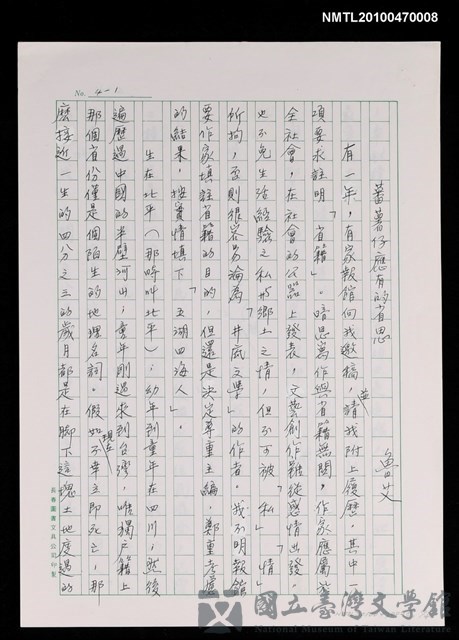 NMTL20100470008
No. 4-1
蕃薯仔應有的省思
魯艾
有一年，有家報館向我邀稿，並請我附上履歷，其中一
項要求註明「省籍」。暗思寫作與省籍無關，作家應屬於
全社會，在社會的公器上發表，文藝創作雖從感情出發，
也不免生活經驗之私與鄉土之情，但不可被「私」「情」
所拘，否則很容易淪為「井底文學」的作者。我不明報館
要作家填註省籍的目的，但還是決定尊重主編，鄭重考慮
的結果，按實情填下「五湖四海人」。
生在北平（那時叫北平）；幼年到童年在四川；然後
遍歷過中國的半壁河山；青年剛過來到台灣，唯獨戶籍上
那個省份僅是個陌生的地理名詞。假如現在不幸立即死亡，那
麼接近一生的四分之三的歲月都是在腳下這塊土地度過的
長春圖書文具公司印製
國立臺灣文學館
National Museum of Taiwan Literature